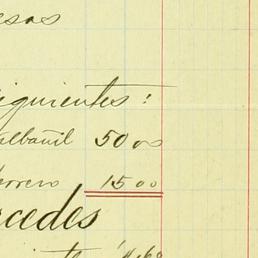 esos
iguientes:
albañil 50 00
errero 15 00
cedes